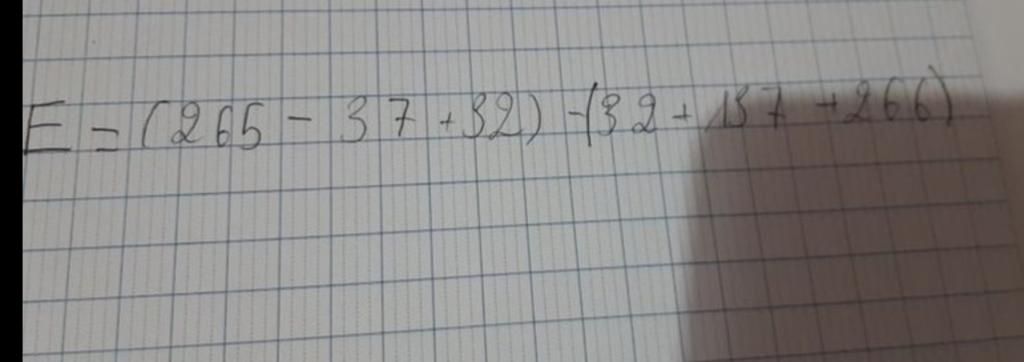 E = (265 - 37 + 32) - (32 + 137 + 266)